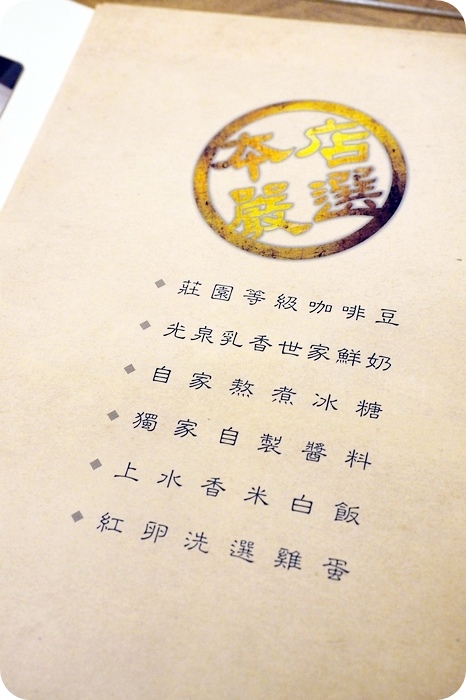 本店
嚴選
莊園等級咖啡豆
光泉乳香世家鮮奶
自家熬煮冰糖
獨家自製醬料
上水香米白飯
紅卵洗選雞蛋